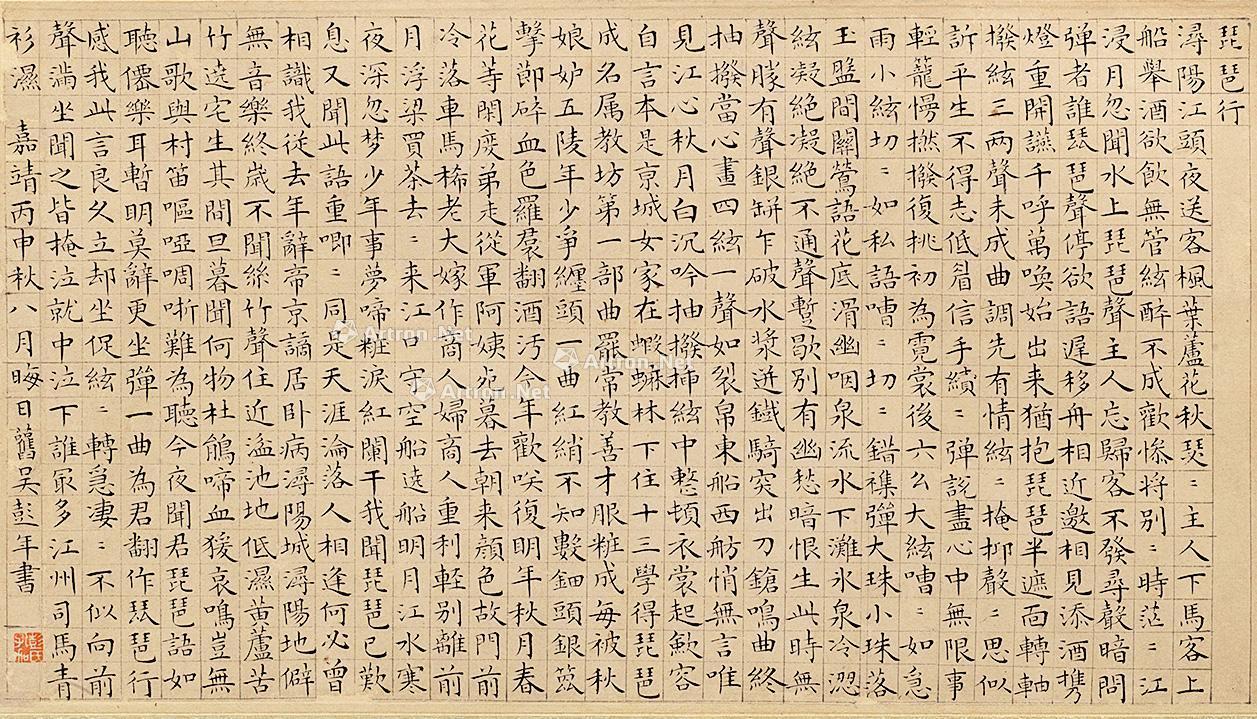 琵琶行
潯陽江頭夜送客楓葉蘆花秋瑟〻主人下馬客上
船舉酒欲飲無管絃醉不成歡慘將別〻時茫〻江
浸月忽聞水上琵琶聲主人忘歸客不發尋聲暗問
弹者誰琵琶聲停欲語遲移舟相近邀相見添酒携
燈重開讌千呼萬喚始出来猶抱琵琶半遮面轉軸
撥絃三两聲未成曲調先有情絃〻掩抑聲〻思似
訢平生不得志低眉信手續〻弹說盡心中無限事
輕籠慢撚撥復挑初為霓裳後六幺大絃嘈〻如急
雨小絃切〻如私語嘈〻切〻錯襍彈大珠小珠落
玉盤間關鶯語花底滑幽咽泉流水下灘氷泉冷澀
絃凝絶凝絶不通聲暫歇別有幽愁暗恨生此時無
聲勝有聲銀缾乍破水漿迸鐡騎突出刀鎗鳴曲終
抽撥當心畫四絃一聲如裂帛東船西舫悄無言唯
見江心秋月白沉吟抽撥揷絃中整頓衣裳起歛容
自言本是京城女家在蝦蟆林下住十三學得琵琶
成名属教坊第一部曲罷常教善才服粧成每被秋
娘妒五陵年少爭纏頭一曲紅綃不知數鈿頭銀篦
擊節碎血色羅裠翻酒汚今年歡咲復明年秋月春
花等閑度弟走從軍阿姨死暮去朝来顔色故門前
冷落車馬稀老大嫁作商人婦商人重利輕別離前
月浮梁買茶去〻来江口守空船遶船明月江水寒
夜深忽梦少年事夢啼粧淚紅闌干我聞琵琶已歎
息又聞此語重唧〻同是天涯淪落人相逢何必曾
相識我從去年辭帝京謫居卧病潯陽城潯陽地僻
無音樂終歲不聞絲竹聲住近湓池地低濕黄蘆苦
竹遶宅生其間旦暮聞何物杜鵑啼血猨哀鳴豈無
山歌與村笛嘔啞啁哳難為聽今夜聞君琵琶語如
聽僊樂耳暫明莫辭更坐彈一曲為君翻作琵琶行
感我此言良久立却坐促絃〻轉急凄〻不似向前
聲滿坐聞之皆掩泣就中泣下誰冣多江州司馬青
衫濕　嘉靖丙申秋八月晦日舊吳彭年書
Artron.Net
Artron.Net
Artron.Net